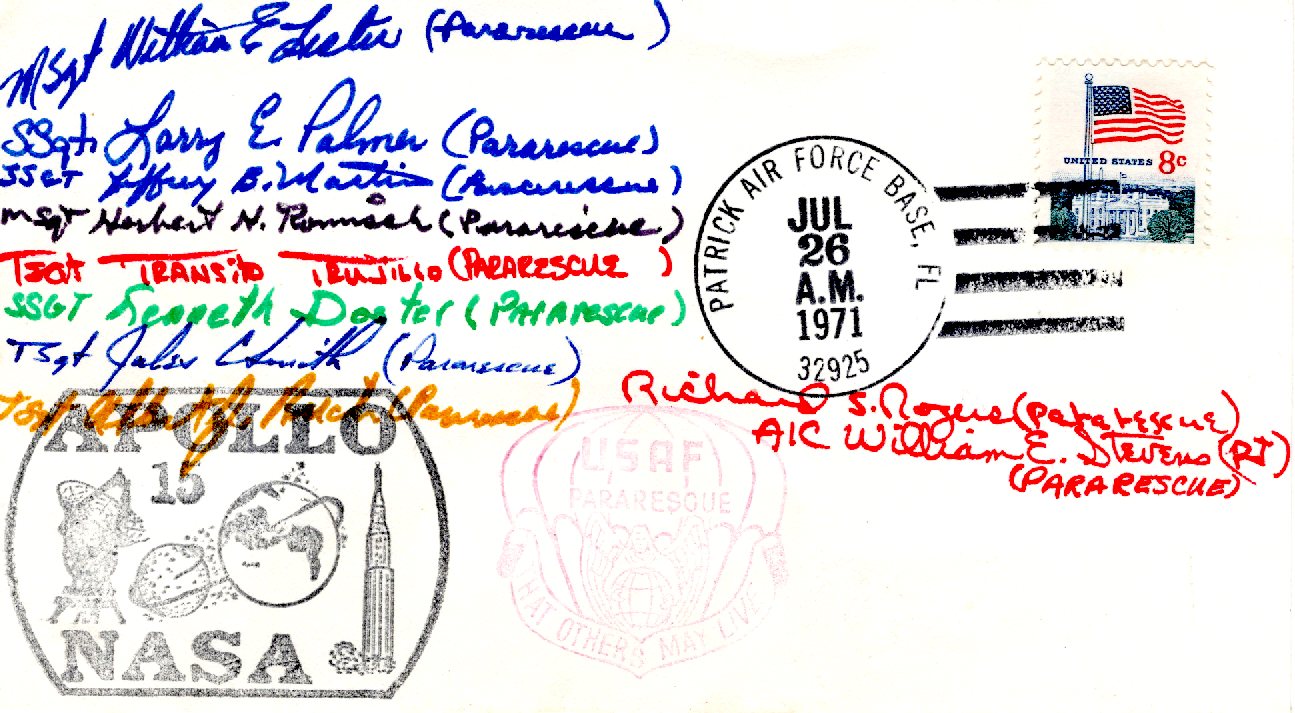 MSgt William E Lester (Pararescue)
SSgt Larry E. Palmer (Pararescue)
SSGT Jeffrey B. Martin (Pararescue)
MSgt Herbert H. Romisch (Pararescue)
TSGT TRANSITO TRUJILLO (PARARESCUE)
SSGT Kenneth Doctor (PARARESCUE)
TSgt Jules C Smith (Pararescue)
TSgt (Pararescue)
Richard S. Rogers (PARARESCUE)
A1C William E. Stevens (PJ)
(PARARESCUE)
UNITED STATES 8c
PATRICK AIR FORCE BASE, FL
JUL
26
A.M.
1971
32925
APOLLO
15
NASA
USAF
PARARESCUE
THAT OTHERS MAY LIVE